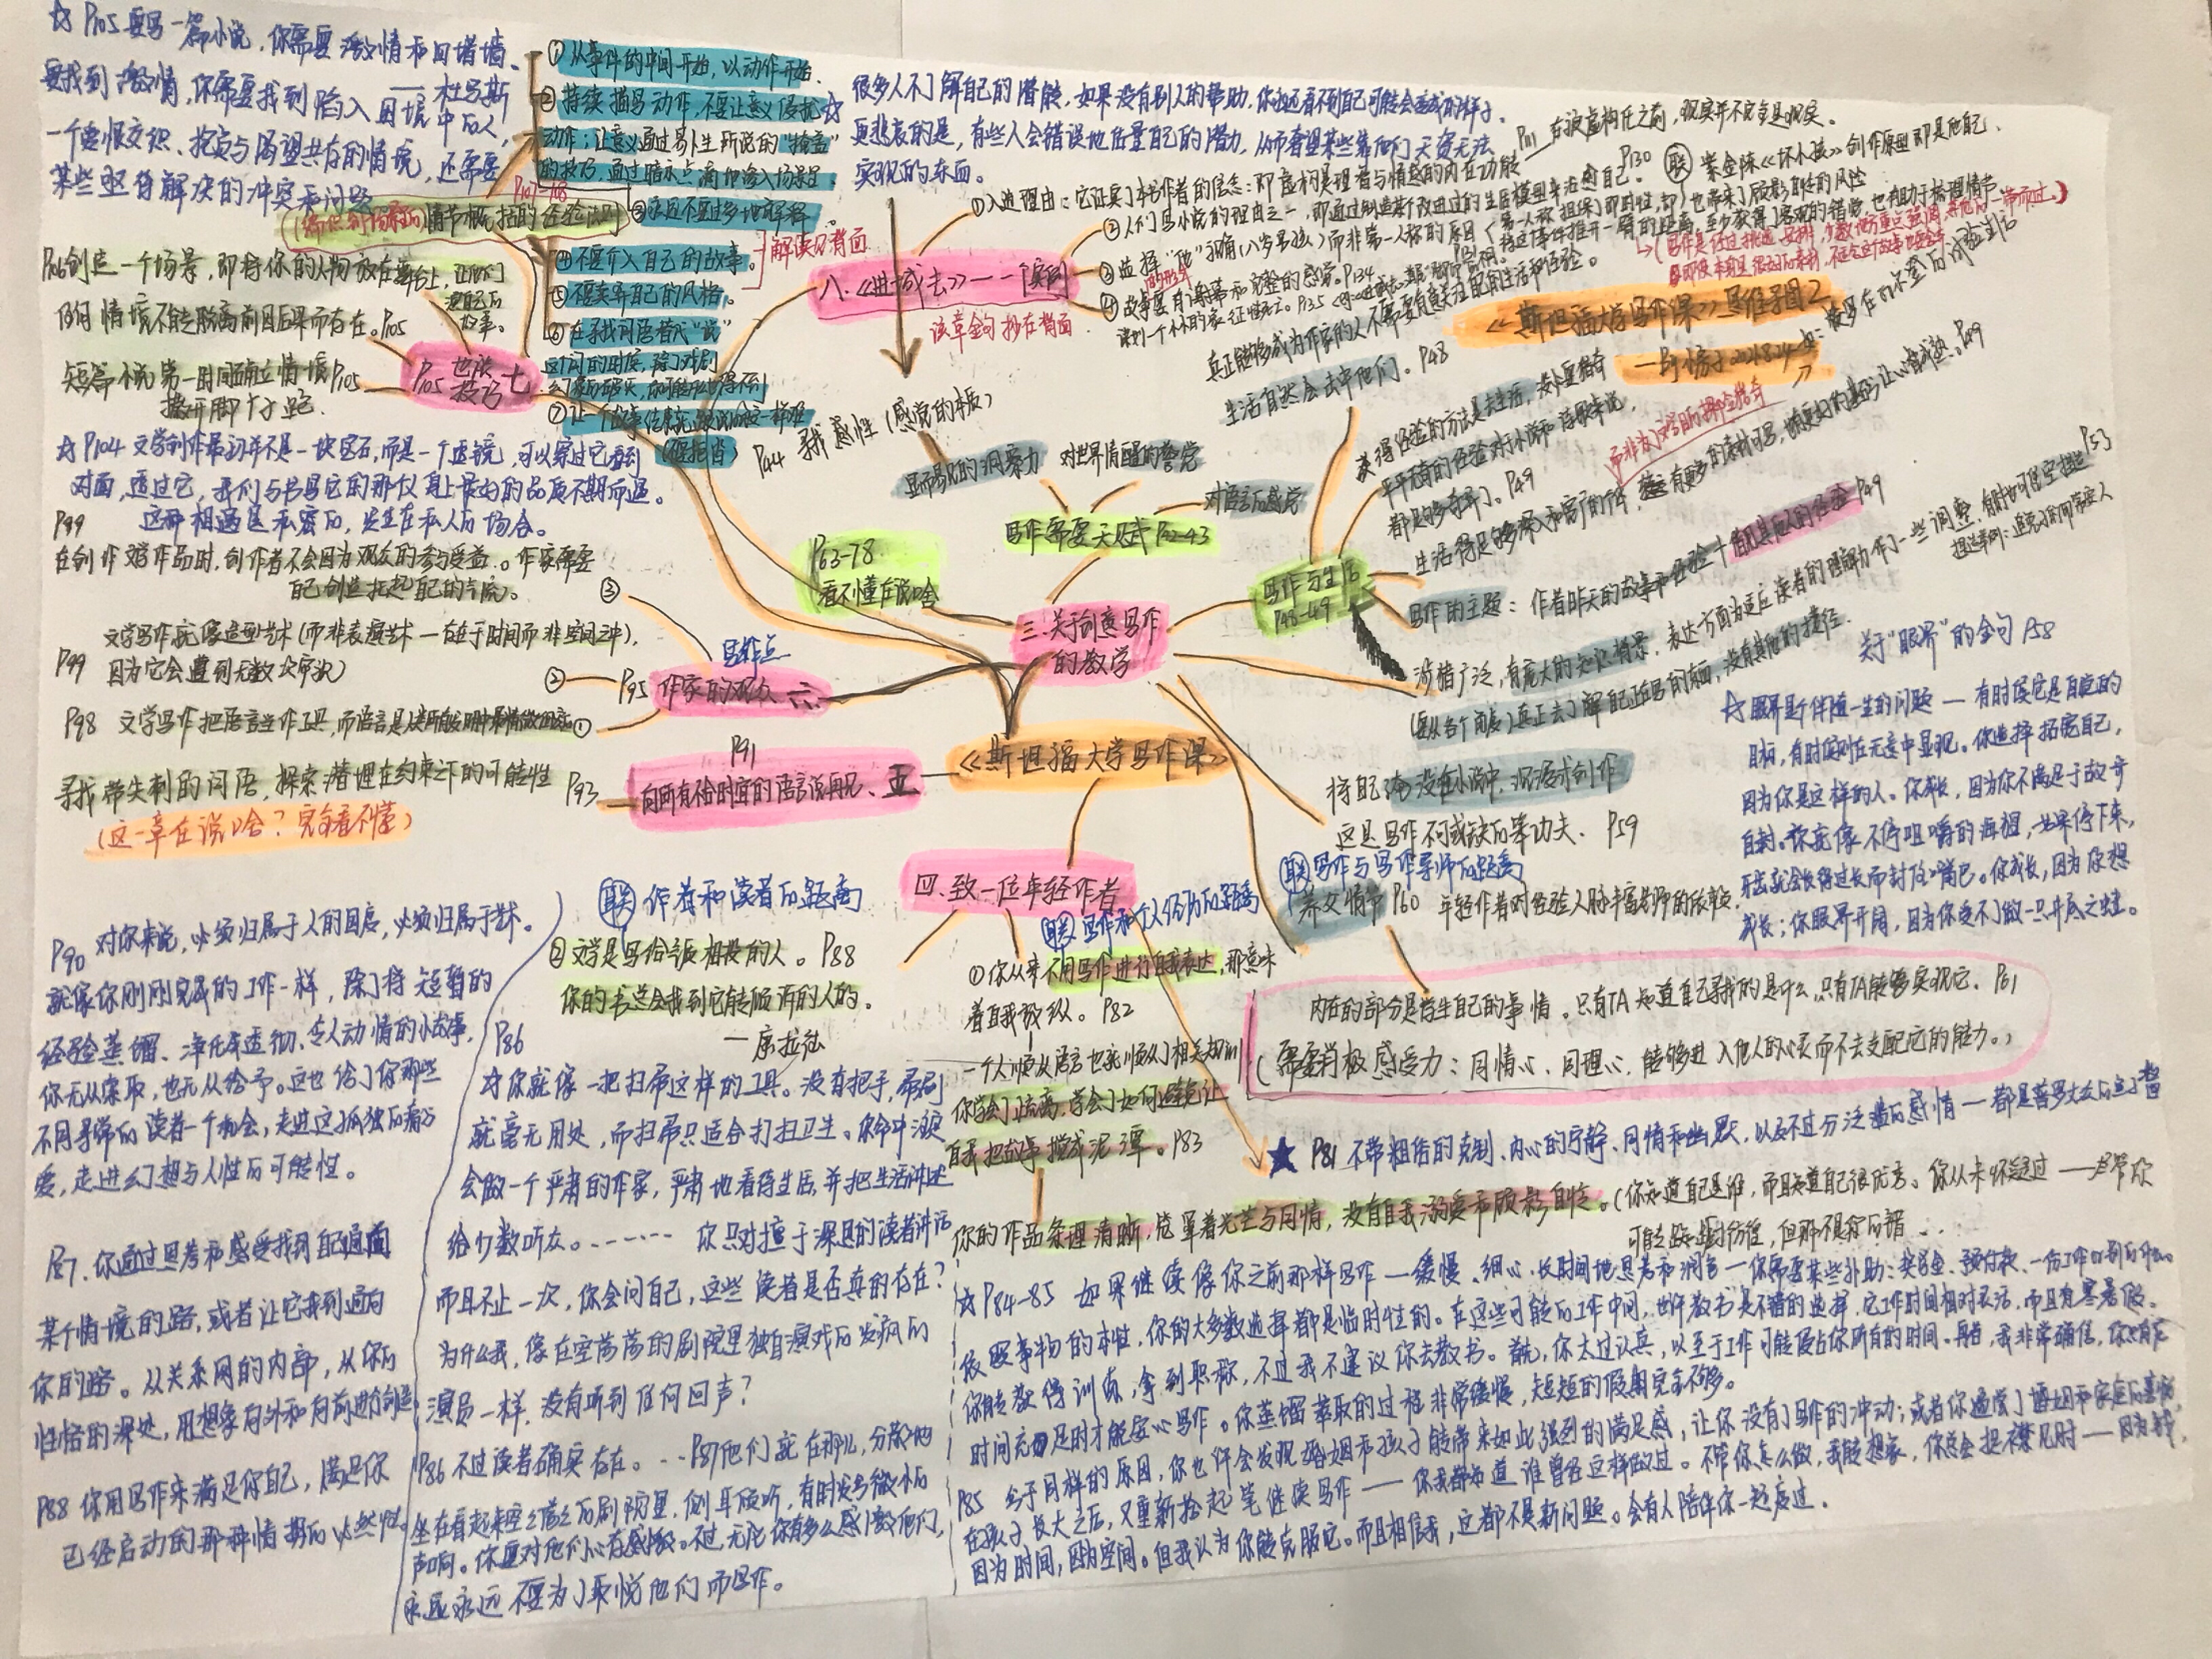 ☆ P105 要写一篇小说，你需要激情和四堵墙。
要找到激情，你需要找到陷入困境中的人，
——杜马斯
一个爱恨交织、抱负与渴望共存的情境，还需要
某些亟待解决的冲突和问题
P107-108
(情节概括的经验法则)
①从事件的中间开始，以动作开始.
②持续描写动作，不要让意义侵扰
动作；让意义通过易卜生所说的“掩盖”
的技巧，通过暗示点滴地渗入场景里.
③永远不要过多地解释.
④不要介入自己的故事。
⑤不要卖弄自己的风格。
解读见背面
⑥在寻找词语替代“说”
这个词的时候，除非戏剧
⑦让一个故事结束
P106 创造一个场景，即将你的人物放在舞台上，让他们
演自己的
故事。
任何情境不能脱离前因后果而存在。P105
短篇小说第一时间确立情境 P105
撒开脚丫子跑.
P105 七
技巧
☆ P104 文学创作最初并不是一块宝石，而是一个透镜，可以穿过它看到
对面，透过它，我们与书写它的那个身上最好的品质不期而遇。
这种相遇是私密的，发生在私人的场合。
P99
在创作文学作品时，创作者不会因为观众的参与受益。作家需要
自己创造托起自己的气流。
③
文学写作就像造型艺术(而非表演艺术—存在于时间而非空间之中)，
P99 因为它会遭到无数次审视)
②
P98 文学写作把语言当作工具，而语言是人类所有发明中最精微的
①
写作点
P95 作家的观众 六
寻找带尖刺的词语，探索潜埋在约束之下的可能性 P93
(这一章在说啥？完全看不懂)
P91
向所有不合时宜的语言说再见、五
☆ 很多人不了解自己的潜能，如果没有别人的帮助，你永远看不到自己可能会变成的样子。
更悲哀的是，有些人会错误地估量自己的潜力，从而奢望某些靠他们天资无法
实现的东西。
P111 在被虚构化之前，现实并不完全是现实。
八.《进城去》——一个实例
该章金句抄在背面
①入选理由：它证实了本书作者的信念：即虚构是理智与情感的内在功能
②人们写小说的理由之一，即通过制造某个改进过的生活模型来治愈自己. P130
联 紫金陈《坏小孩》创作原型即是他自己.
③选择“他”视角(八岁男孩)而非第一人称的原因
④故事要有谢幕和完整的感觉. P134
《斯坦福大学写作课》思维导图2
真正能够成为作家的人不需要有意关注自己的生活和经验。
生活自然会击中他们。P48
获得经验的方法是去生活，没必要猎奇
平平无奇的经验对于小说和诗歌来说，
都足够奇异了。P49
而非为了写目的那些猎奇
写作与生活
P48-49
写作的主题：作者昨天的故事和经验+借用其他人的经验 P49
涉猎广泛，有庞大的知识背景.
(要从各个角度)真正去了解自己正在写的东西，没有其他的捷径.
P44 寻找感性(感觉的本质)
显而易见的洞察力
对世界清醒的警觉
对语言的感觉
写作需要天赋 P42-43
P63-78
看不懂在说啥
三.关于创意写作
的教学
《斯坦福大学写作课》
关于“眼界”的金句 P58
☆眼界是个伴随一生的问题—有时候它是自觉的
目标，有时候则在无意中显现。你选择拓宽自己，
因为你是这样的人。你成长，因为你不满足于故步
自封。你就像不停咀嚼的海狸，如果停下来，
牙齿就会长得过长而封住嘴巴。你成长，因为你想
成长；你眼界开阔，因为你受不了做一只井底之蛙。
将自己淹没在小说中，沉浸式创作
这是写作不可或缺的笨功夫. P59
联 写作与写作导师的距离
养父情节 P60 年轻作者对经验人脉丰富老师的依赖
内在的部分是学生自己的事情。只有TA知道自己寻找的是什么，只有TA能够实现它. P61
(需要消极感受力：同情心、同理心，能够进入他人的心灵而不去支配它的能力。)
四.致一位年轻作者
联 作者和读者的距离
②文学是写给气质相投的人。P88
你的书总会找到它能倾诉的人的.
—康拉德
联 写作和个人经历的距离
①你从来不用写作进行自我表达，那意味
着自我放纵。P82
一个人顺从语言也就顺从了相关规则
你学会了疏离，学会了如何避免让
自我把故事搅成泥潭。P83
★ P81 不带粗俗的克制、内心的宁静、同情和幽默，以及不过分泛滥的感情—都是普罗大众的点子
你的作品条理清晰，笼罩着光芒与同情，没有自我溺爱和顾影自怜。(你知道自己是谁，而且知道自己很优秀。你从未怀疑过——尽管你
可能感到彷徨，但那不是你的错...
☆ P84-85 如果继续像你之前那样写作—缓慢、细心、长时间地思考和润色—你需要某些补助：奖学金、预付款、一份工作或别的什么.
依照事物的本性，你的大多数选择都是临时性的。在这些可能的工作中间，也许教书是不错的选择，它工作时间相对灵活，而且有寒暑假。
你能获得训练，拿到职称，不过我不建议你去教书。首先，你太过认真，以至于工作可能侵占你所有的时间。再者，我非常确信，你只有在
时间充足时才能安心写作。你蒸馏萃取的过程非常缓慢，短短的假期完全不够。
P85 出于同样的原因，你也许会发现婚姻和孩子能带来如此强烈的满足感，让你没有了写作的冲动；
在孩子长大之后，又重新拾起笔继续写作——你我都知道谁曾经这样做过。不管你怎么做，
因为时间，因为空间。但我认为你能克服它。而且相信我，这都不是新问题。会有人陪伴你一起度过.
P90 对你来说，必须归属于人的国度，必须归属于艺术。
就像你刚刚完成的工作一样，除了将短暂的
经验蒸馏、净化成透彻、令人动情的小故事，
你无从索取，也无从给予。这也给了你那些
不同寻常的读者一个机会，走进这孤独的痛与
爱，走进幻想与人性的可能性。
P87.你通过思考和感受找到自己通向
某个情境的路，或者让它找到通向
你的路。从关系网的内部，从你的
性格的深处，用想象向外和向前进行创造.
P88 你用写作来满足你自己，满足你
已经启动的那种情境的必然性.
P86
☆你就像一把扫帚这样的工具。没有把手，帚刷
就毫无用处，而扫帚只适合打扫卫生。你命中注定
会做一个严肃的作家，严肃地看待生活，并把生活讲述
给少数听众。……… 你只对擅于深思的读者讲话
而且不止一次，你会问自己，这些读者是否真的存在？
为什么我，像在空荡荡的剧院里独自演戏的发疯的
演员一样，没有听到任何回声？
P86 不过读者确实存在。…P87他们就在那儿，分散地
坐在看起来空空荡荡的剧院里，侧耳倾听，有时发出微小的
声响。你要对他们心存感激。不过，无论你有多么感激他们，
永远永远不要为了取悦他们而写作。